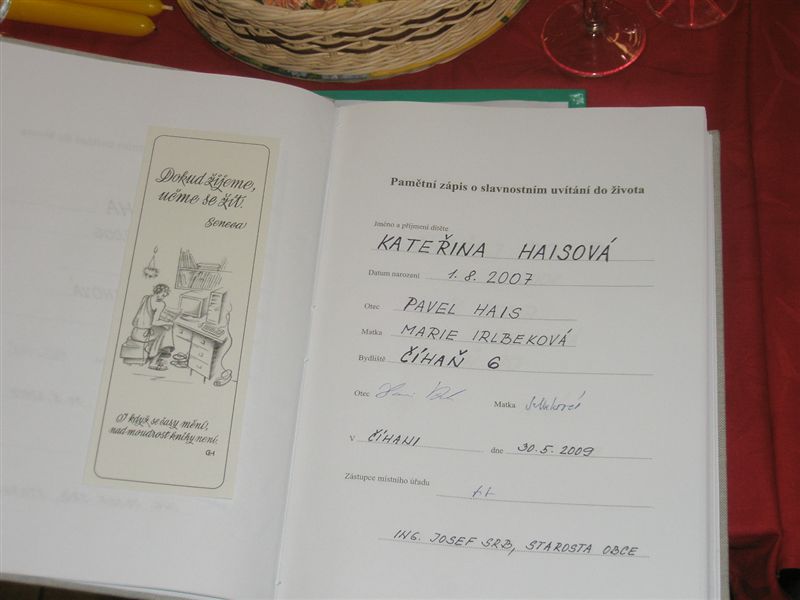 Dokud žijeme,
učme se žít.
Seneca
I když se časy mění,
nad moudrost knihy není.
GH
Pamětní zápis o slavnostním uvítání do života
Jméno a příjmení dítěte
KATEŘINA HAISOVÁ
Datum narození 1. 8. 2007
Otec PAVEL HAIS
Matka MARIE IRLBEKOVÁ
Bydliště ČÍHAŇ 6
Otec Matka
V ČÍHANI dne 30. 5. 2009
Zástupce místního úřadu
ING. JOSEF SRB, STAROSTA OBCE